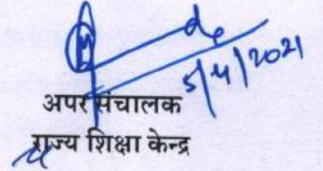 5/4/2021
अपर संचालक
राज्य शिक्षा केन्द्र